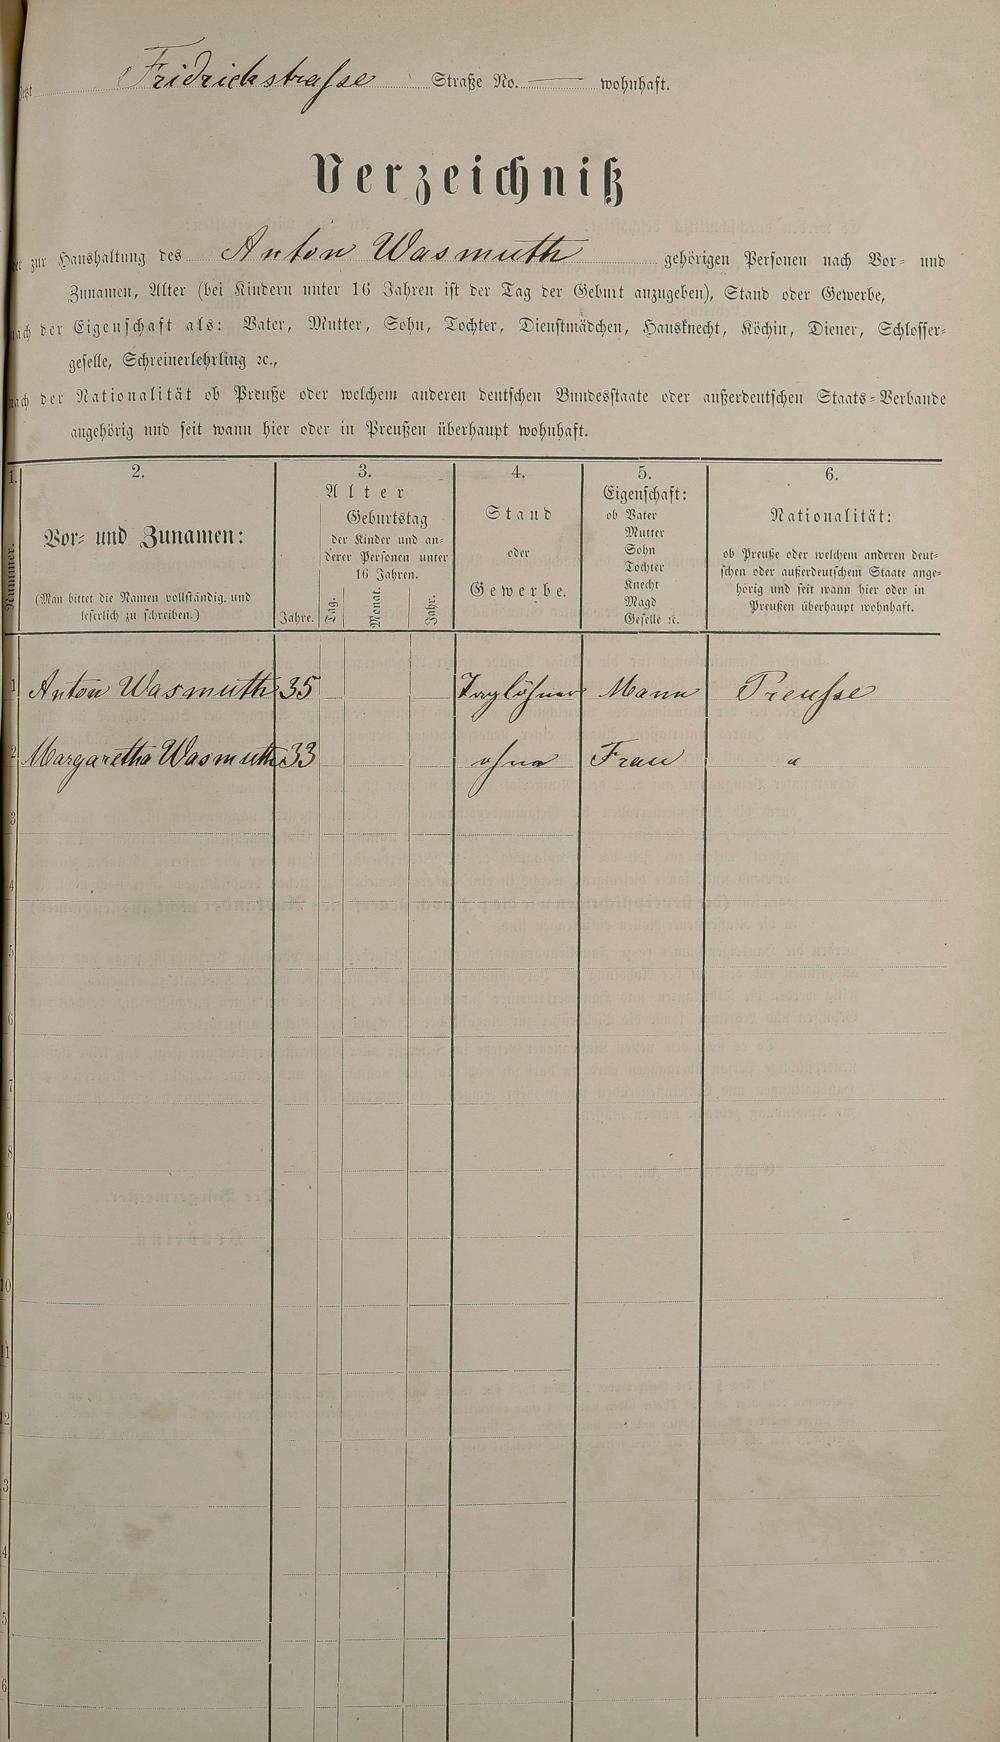 Fridrichstrasse Straße No. — wohnhaft.
Verzeichniß
der zur Haushaltung des Anton Wasmuth gehörigen Personen nach Vor- und
Zunamen, Alter (bei Kindern unter 16 Jahren ist der Tag der Geburt anzugeben), Stand oder Gewerbe,
nach der Eigenschaft als: Vater, Mutter, Sohn, Tochter, Dienstmädchen, Hausknecht, Köchin, Diener, Schlosser-
geselle, Schreinerlehrling ꝛc.,
nach der Nationalität ob Preuße oder welchem anderen deutschen Bundesstaate oder außerdeutschen Staats-Verbande
angehörig und seit wann hier oder in Preußen überhaupt wohnhaft.
1. 2. 3. 4. 5. 6.
Nummer.
Vor- und Zunamen:
(Man bittet die Namen vollständig und
leserlich zu schreiben.)
Alter
Jahre.
Geburtstag
der Kinder und an-
derer Personen unter
16 Jahren.
Tag. Monat. Jahr.
Stand
oder
Gewerbe.
Eigenschaft:
ob Vater
Mutter
Sohn
Tochter
Knecht
Magd
Geselle ꝛc.
Nationalität:
ob Preuße oder welchem anderen deut-
schen oder außerdeutschem Staate ange-
hörig und seit wann hier oder in
Preußen überhaupt wohnhaft.
1 Anton Wasmuth 35 Taglöhner Mann Preusse
2 Margaretha Wasmuth 33 ohne Frau "
3
4
5
6
7
8
9
10
11
12
3
4
5
6